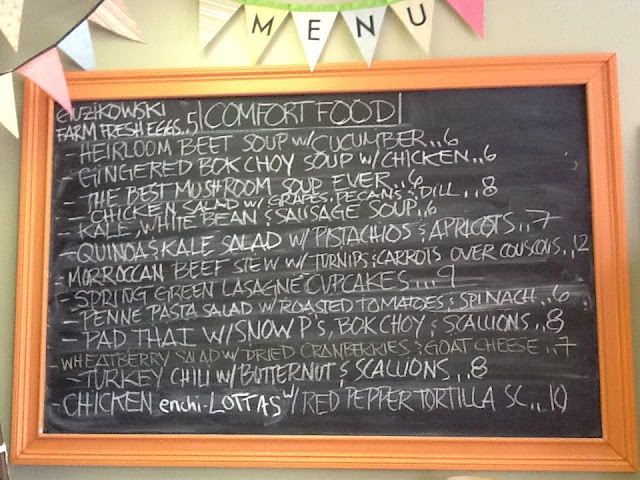 MENU
GUZIKOWSKI
FARM FRESH EGGS..5 |COMFORT FOOD|
- HEIRLOOM BEET SOUP W/ CUCUMBER..6
- GINGERED BOK CHOY SOUP W/ CHICKEN..6
- THE BEST MUSHROOM SOUP EVER..6
- CHICKEN SALAD W/ GRAPES, PECANS & DILL..8
- KALE, WHITE BEAN & SAUSAGE SOUP..6
- QUINOA & KALE SALAD W/ PISTACHIOS & APRICOTS..7
- MORROCCAN BEEF STEW W/ TURNIPS & CARROTS OVER COUSCOUS..12
- SPRING GREEN LASAGNE CUPCAKES...9
- PENNE PASTA SALAD W/ ROASTED TOMATOES & SPINACH..6
- PAD THAI W/ SNOW P'S, BOK CHOY & SCALLIONS..8
- WHEATBERRY SALAD W/ DRIED CRANBERRIES & GOAT CHEESE..7
- TURKEY CHILI W/ BUTTERNUT & SCALLIONS..8
- CHICKEN enchi-LOTTAS W/ RED PEPPER TORTILLA SC...10